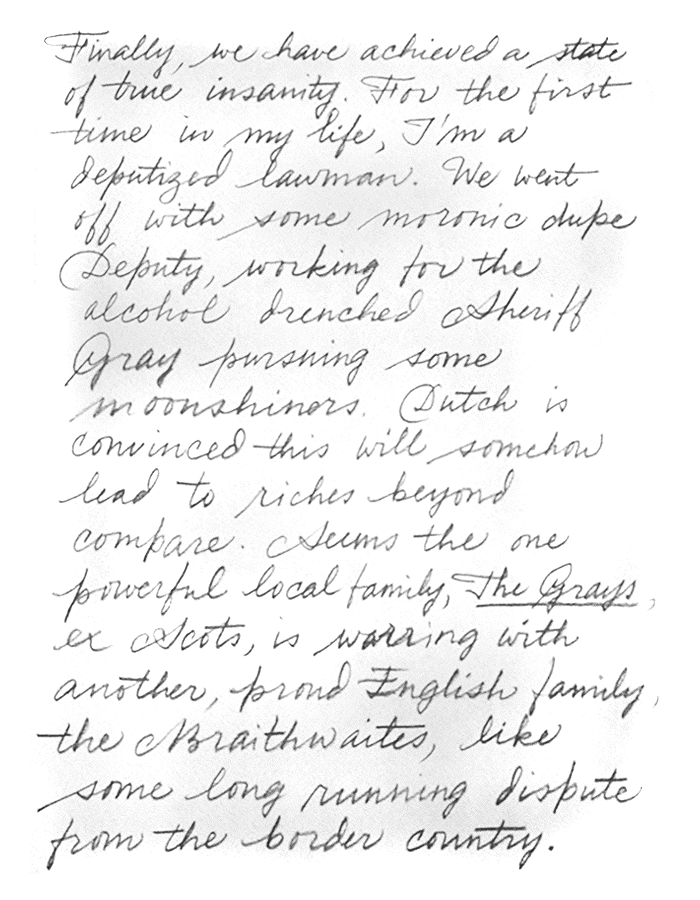 Finally, we have achieved a state
of true insanity. For the first
time in my life, I'm a
deputized lawman. We went
off with some moronic dupe
Deputy, working for the
alcohol drenched Sheriff
Gray pursuing some
moonshiners. Dutch is
convinced this will somehow
lead to riches beyond
compare. Seems the one
powerful local family, The Grays,
ex Scots, is warring with
another, proud English family,
the Braithwaites, like
some long running dispute
from the border country.